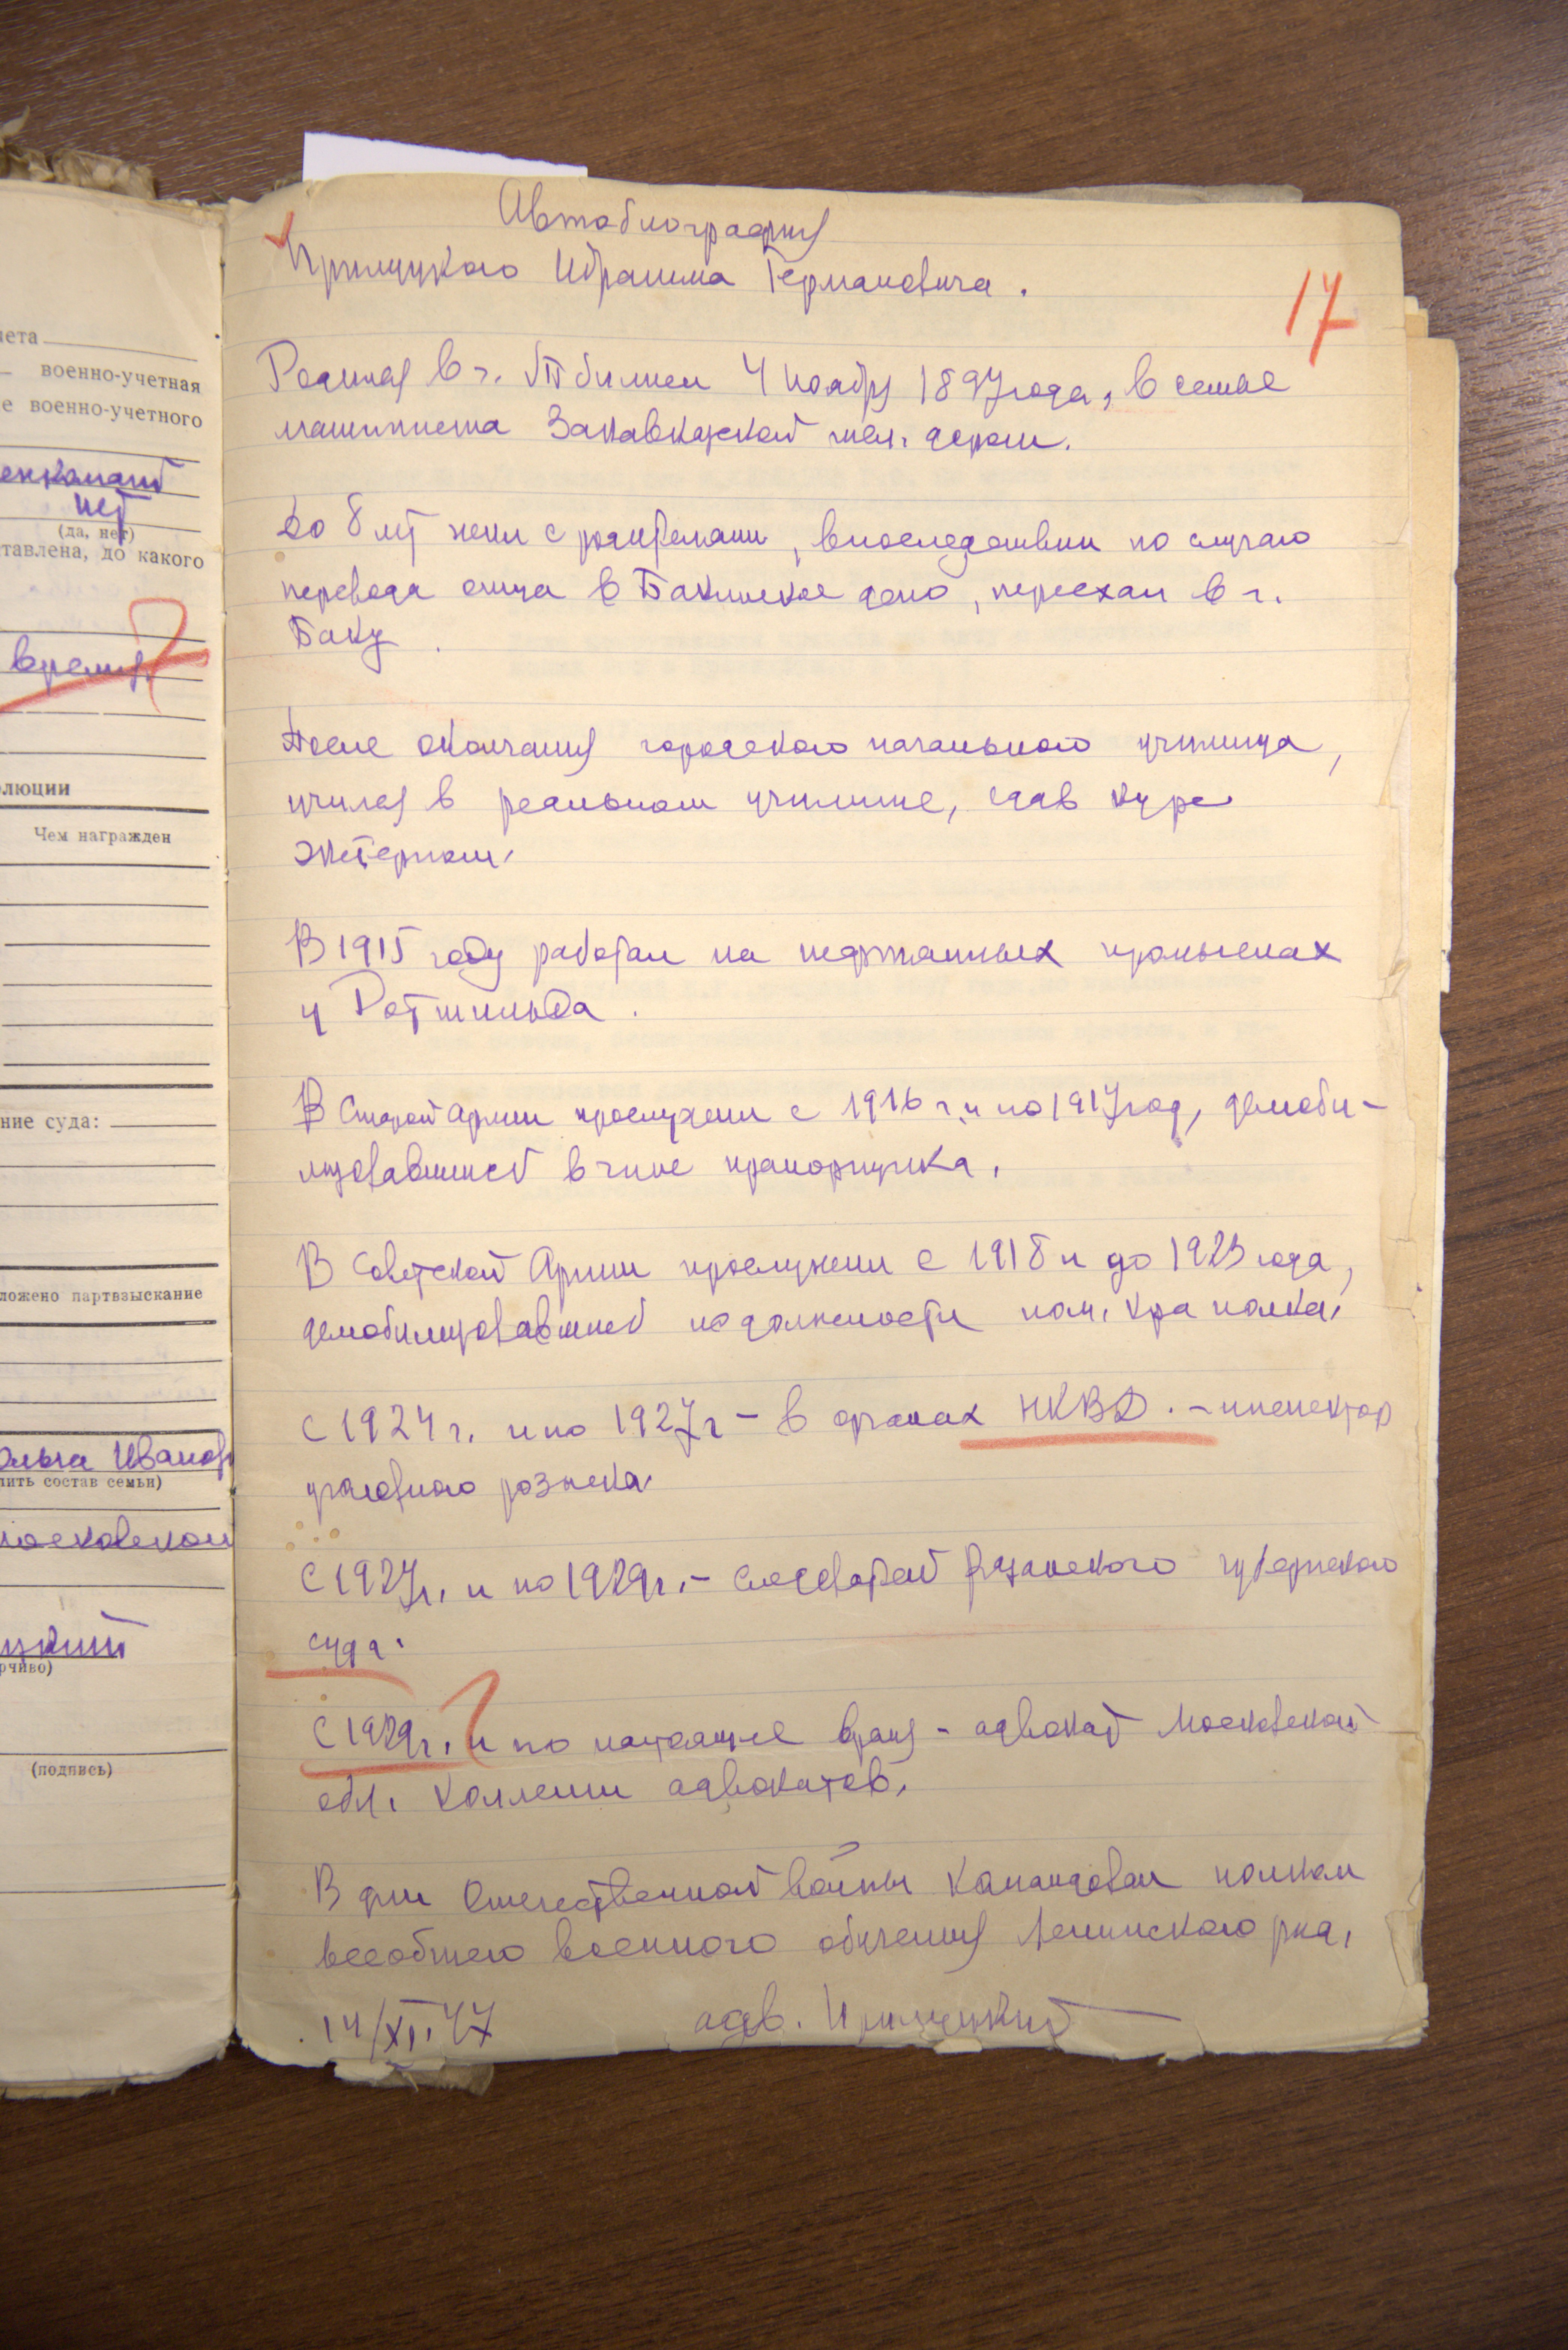 чета
военно-учетная
е военно-учетного
енкомат
нет
(да, нет)
тавлена, до какого
время
олюции
Чем награжден
ние суда:
ложено партвзыскание
Ольга Иванов
лить состав семьи)
московском
цкий
рчиво)
(подпись)
Автобиография
Прилуцкого Ибрагима Германовича.
17
Родился в г. Тбилиси 4 ноября 1897 года, в семье
машиниста Закавказской жел. дороги.
До 8 лет жил с родителями, впоследствии по случаю
перевода отца в Бакинское депо, переехал в г.
Баку.
После окончания городского начального училища,
учился в реальном училище, сдав курс
экстерном.
В 1915 году работал на нефтяных промыслах
у Ротшильда.
В старой армии прослужил с 1916 г. и по 1917 год, демоби-
лизовавшись в чине прапорщика.
В Советской Армии прослужил с 1918 и до 1923 года,
демобилизовавшись по должности пом. к-ра полка.
С 1924 г. и по 1927 г – в органах НКВД. – инспектор
уголовного розыска.
С 1927 г. и по 1929 г. – следователь Рязанского губернского
суда.
С 1929 г. и по настоящее время – адвокат Московской
обл. коллегии адвокатов.
В дни Отечественной войны командовал полком
всеобщего военного обучения Ленинского р-на.
14/XI.47 адв. Прилуцкий